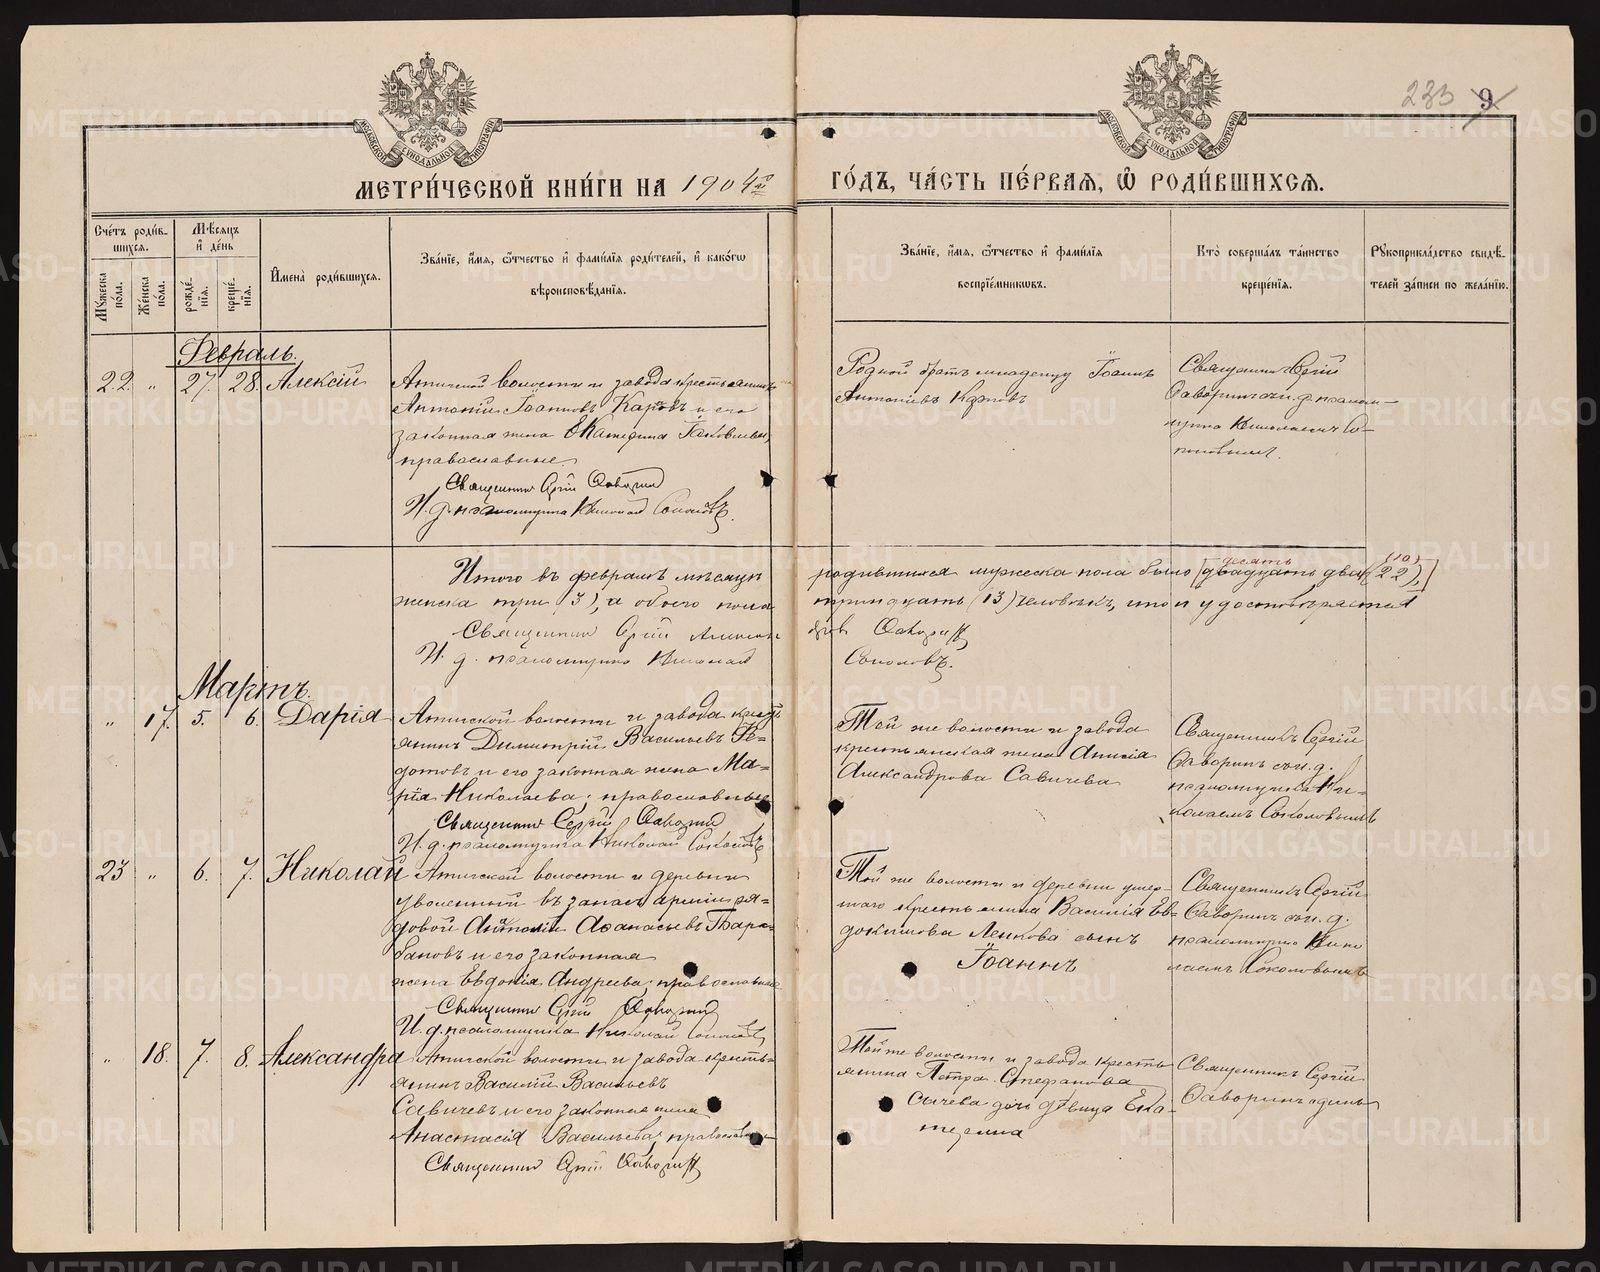 233 9
МОСКОВСКОЙ СѴНОДАЛЬНОЙ ТИПОГРАФІИ
МОСКОВСКОЙ СѴНОДАЛЬНОЙ ТИПОГРАФІИ
МЕТРИ́ЧЕСКОЙ КНИ́ГИ НА 1904й
ГО́ДЪ, ЧА́СТЬ ПЕ́РВАѦ, Ѽ РОДИ́ВШИХСѦ.
Сче́тъ роди́в-
шихсѧ.
Мꙋ́жеска по́ла.
Же́нска по́ла.
Мѣ́сѧцъ
и҆ де́нь
рожде́-
нїѧ.
креще́-
нїѧ.
И҆мена̀ роди́вшихсѧ.
Зва́нїе, и҆́мѧ, ѻ҆́тчество и҆ фами́лїѧ роди́телей, и҆ како́гѡ
вѣроисповѣ́данїѧ.
Зва́нїе, и҆́мѧ, ѻ҆́тчество и҆ фами́лїѧ
воспрїе́мникѡвъ.
Кто̀ соверша́лъ та́инство
креще́нїѧ.
Рꙋкоприкла́дство свидѣ́-
телей за́писи по жела́нїю.
Февраль.
22. " 27. 28. Алексій
Ачитской волости и завода крестьянинъ
Антоній Іоанновъ Карповъ и его
законная жена Екатерина Іаковлева,
православные.
Священникъ Сергій
И. д. псаломщика Николай Соколовъ.
Родной братъ младенцу Іоаннъ
Антоніевъ Карповъ
Священникъ Сергій
съ и. д. псалом-
щика Николаемъ Со-
коловымъ.
Итого въ февралѣ мѣсяцѣ родившихся мужеска пола было [двадцать два (22),]
десять (10)
женска три (3), а обоего пола тринадцать (13) человѣкъ, что и удостовѣряется
Священникъ Сергій
И. д. псаломщика Николай Соколовъ.
Мартъ.
" 17. 5. 6. Дарія
Ачитской волости и завода кресть
янинъ Димитрій Васильевъ Фе=
дотовъ и его законная жена Ма=
рія Николаева, православные
Священникъ Сергій
И. д. псаломщика Николай Соколовъ
Той же волости и завода
крестьянская жена
Александрова Савичева
Священникъ Сергій
съ и. д.
псаломщика Ни-
колаемъ Соколовымъ
23 " 6. 7. Николай
Ачитской волости и деревни
уволенный въ запасъ арміи ря=
довой Анатолій Аѳанасьевъ Бара-
бановъ и его законная
жена Евдокія Андреева, православные
Священникъ Сергій
И. д. псаломщика Николай Соколовъ
Той же волости и деревни умер-
шаго крестьянина Василія Ев-
докимова сынъ
Іоаннъ
Священникъ Сергій
съ и. д.
псаломщика Нико
лаемъ Соколовымъ
" 18. 7. 8. Александра
Ачитской волости и завода кресть=
янинъ Василій Васильевъ
Савичевъ и его законная жена
Анастасія Васильева, православные
Священникъ Сергій
Той же волости и завода кресть
янина Петра Стефанова
Сычева дочь дѣвица Ека
терина
Священникъ Сергій
одинъ
METRIKI.GASO-URAL.RU